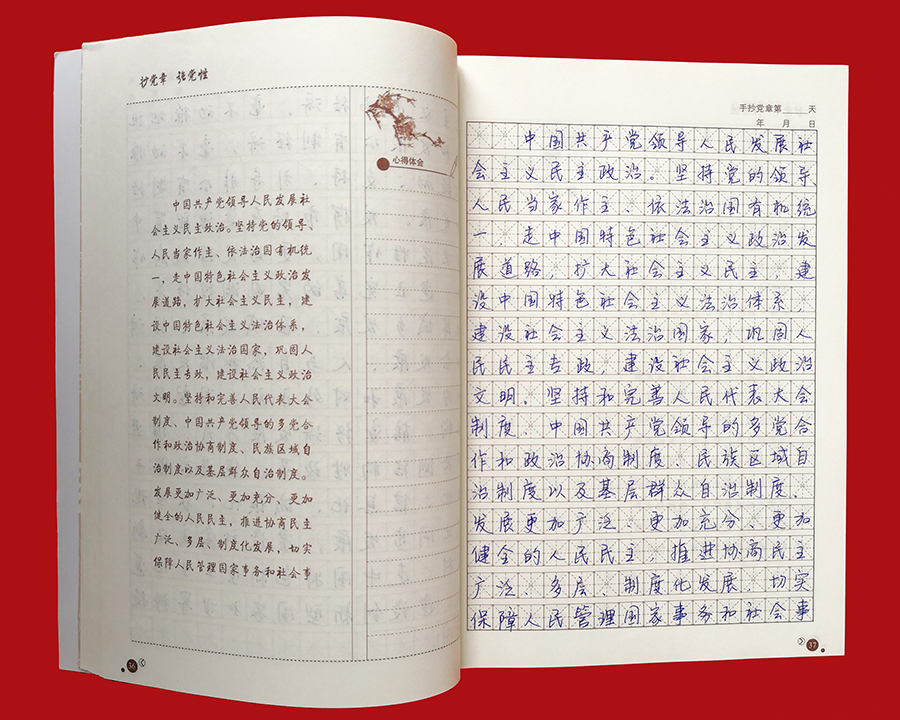 抄党章 强党性
心得体会
中国共产党领导人民发展社
会主义民主政治。坚持党的领导、
人民当家作主、依法治国有机统
一，走中国特色社会主义政治发
展道路，扩大社会主义民主，建
设中国特色社会主义法治体系，
建设社会主义法治国家，巩固人
民民主专政，建设社会主义政治
文明。坚持和完善人民代表大会
制度、中国共产党领导的多党合
作和政治协商制度、民族区域自
治制度以及基层群众自治制度。
发展更加广泛、更加充分、更加
健全的人民民主，推进协商民主
广泛、多层、制度化发展，切实
保障人民管理国家事务和社会事
36
手抄党章第 天
年 月 日
中国共产党领导人民发展社
会主义民主政治。坚持党的领导、
人民当家作主、依法治国有机统
一，走中国特色社会主义政治发
展道路，扩大社会主义民主，建
设中国特色社会主义法治体系，
建设社会主义法治国家，巩固人
民民主专政，建设社会主义政治
文明。坚持和完善人民代表大会
制度、中国共产党领导的多党合
作和政治协商制度、民族区域自
治制度以及基层群众自治制度、
发展更加广泛、更加充分、更加
健全的人民民主，推进协商民主
广泛、多层、制度化发展，切实
保障人民管理国家事务和社会事
37